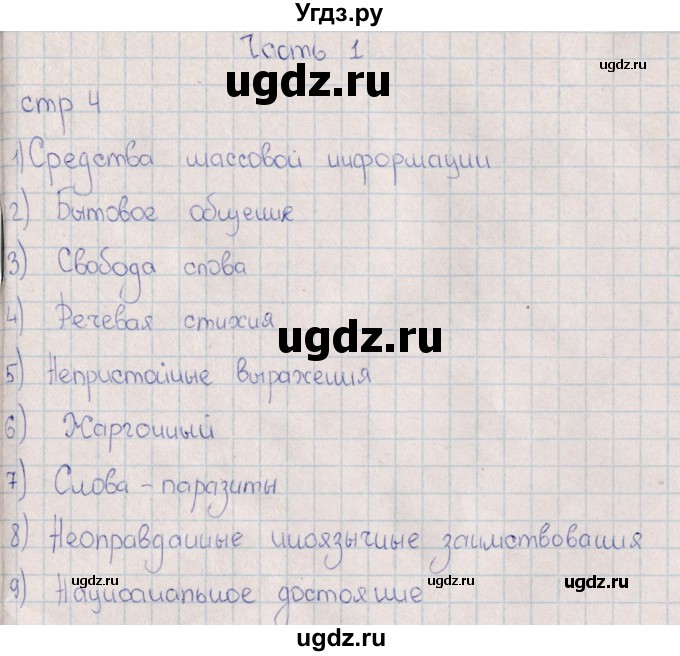 Угдз.ру
Часть 1
ugdz.ru
ugdz.ru
стр 4
1) Средства массовой информации
2) Бытовое общение
3) Свобода слова
4) Речевая стихия
ugdz.ru
5) Непристойные выражения
6) Жаргонный
7) Слова-паразиты
8) Неоправданные иноязычные заимствования
ugdz.ru
ugdz.ru
ugdz.ru
9) Национальное достояние
ugdz.ru